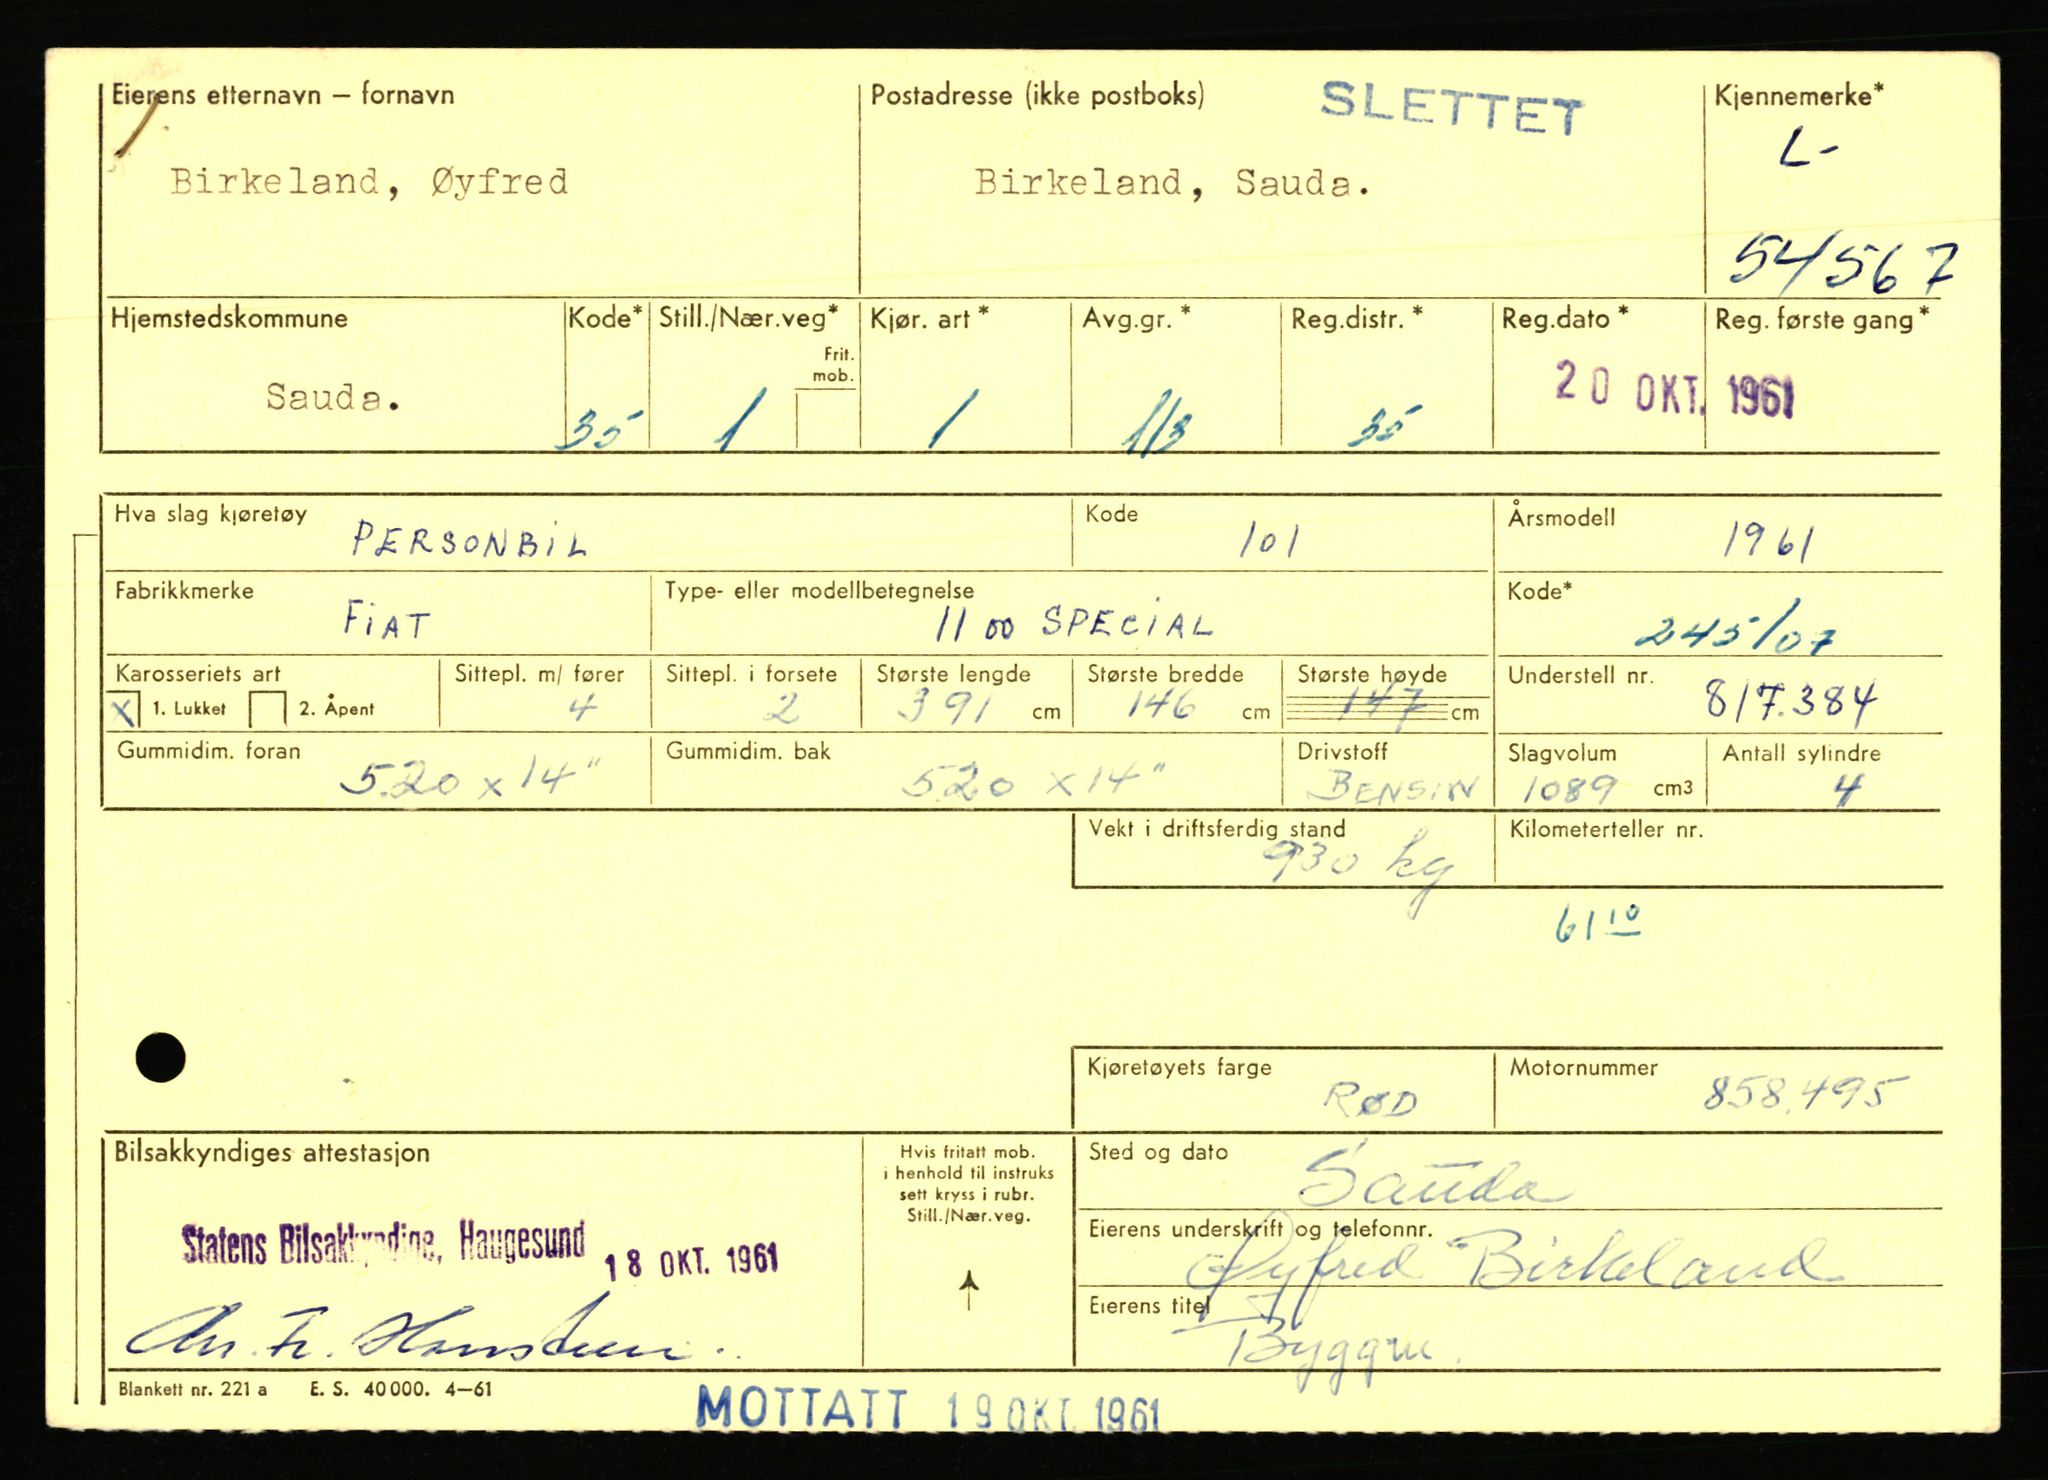 Eierens etternavn – fornavn
Birkeland, Øyfred
Postadresse (ikke postboks)
SLETTET
Birkeland, Sauda.
Kjennemerke*
L-
54567
Hjemstedskommune
Sauda.
Kode*
35
Still./Nær.veg*
Frit.
mob.
1
Kjør. art *
1
Avg.gr. *
1/3
Reg.distr. *
35
Reg.dato *
Reg. første gang *
20 OKT. 1961
Hva slag kjøretøy
PERSONBIL
Kode
101
Årsmodell
1961
Fabrikkmerke
FIAT
Type- eller modellbetegnelse
1100 SPECIAL
Kode*
245/07
Karosseriets art
X 1. Lukket 2. Åpent
Sittepl. m/ fører
4
Sittepl. i forsete
2
Største lengde
391 cm
Største bredde
146 cm
Største høyde
147 cm
Understell nr.
817.384
Gummidim. foran
5.20 x 14"
Gummidim. bak
5.20 x 14"
Drivstoff
BENSIN
Slagvolum
1089 cm3
Antall sylindre
4
Vekt i driftsferdig stand
930 kg
Kilometerteller nr.
61 10
Kjøretøyets farge
RØD
Motornummer
858.495
Bilsakkyndiges attestasjon
Statens Bilsakkyndige, Haugesund
18 OKT. 1961
Hvis fritatt mob.
i henhold til instruks
sett kryss i rubr.
Still./Nær.veg.
Sted og dato
Sauda
Eierens underskrift og telefonnr.
Øyfred Birkeland
Eierens titel
Blankett nr. 221 a E. S. 40000. 4–61
MOTTATT 19 OKT. 1961